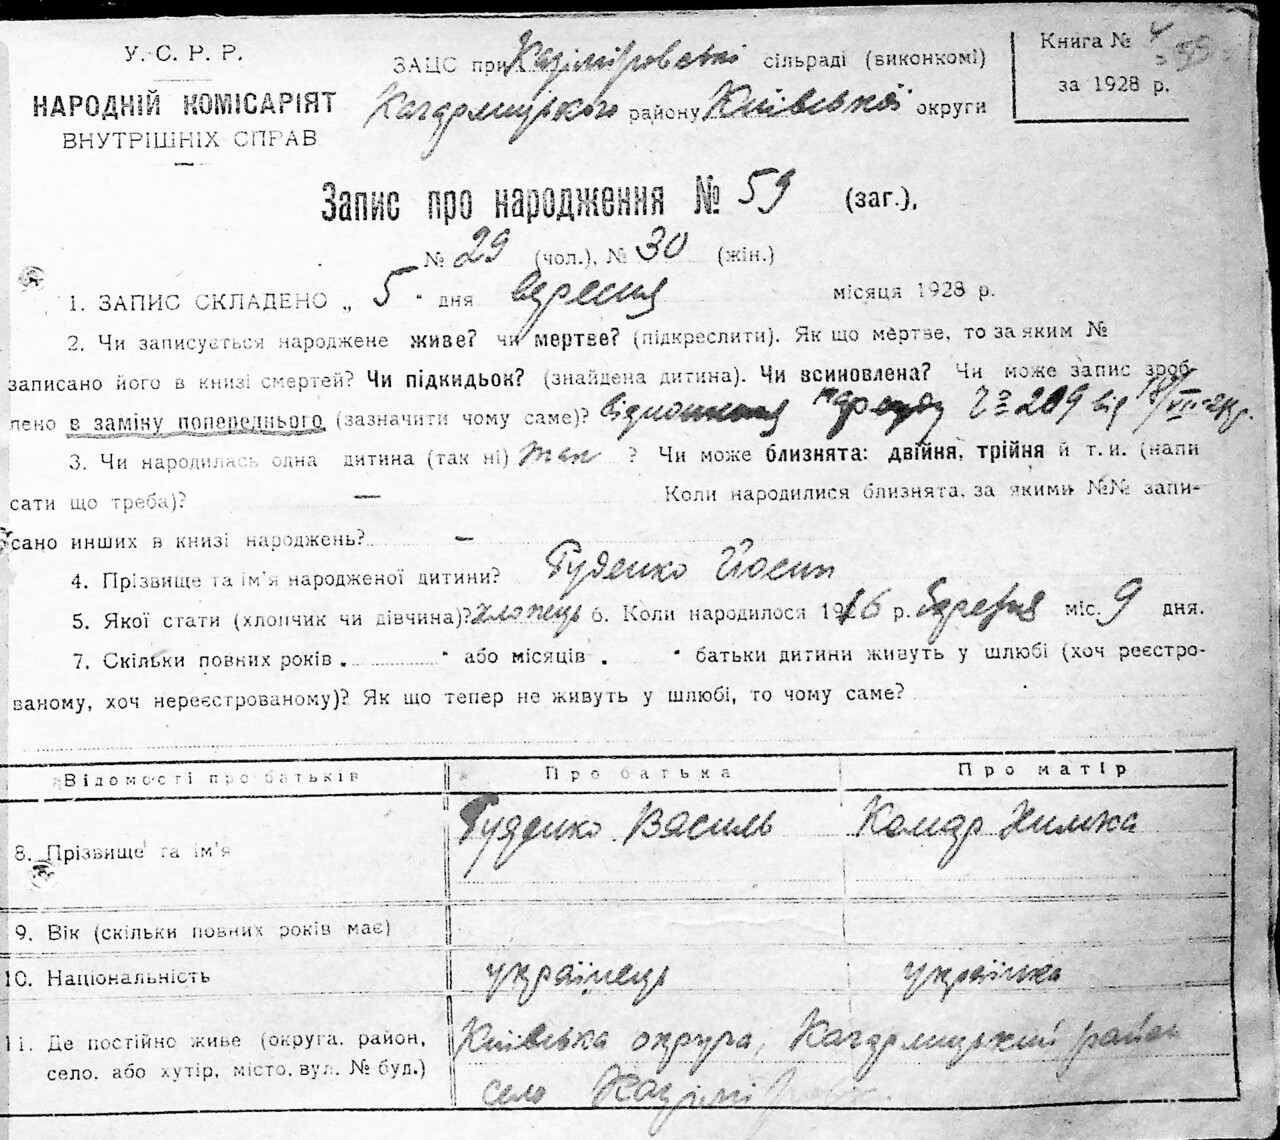 У.С.Р.Р.
НАРОДНІЙ КОМІСАРІЯТ
ВНУТРІШНІХ СПРАВ
ЗАЦС при Казіміровські сільраді (виконкомі)
Кагарлицького району Київської округи
Книга №
за 1928 р.
Запис про народження № 59 (заг.),
№ 29 (чол.), № 30 (жін.)
1. ЗАПИС СКЛАДЕНО „ 5 " дня вересня місяця 1928 р.
2. Чи записується народжене живе? чи мертве? (підкреслити). Як що мертве, то за яким №
записано його в книзі смертей? Чи підкидьок? (знайдена дитина). Чи всиновлена? Чи може запис зроб
лено в заміну попереднього (зазначити чому саме)? Відношення 209 від
3. Чи народилась одна дитина (так ні) так ? Чи може близнята: двійня, трійня й т. и. (напи
сати що треба)? — Коли народилися близнята, за якими №№ запи-
сано инших в книзі народжень? —
4. Прізвище та ім'я народженої дитини? Гуденко Йосип
5. Якої стати (хлопчик чи дівчина)? хлопець 6. Коли народилося 1916 р. березня міс. 9 дня.
7. Скільки повних років . " або місяців . " батьки дитини живуть у шлюбі (хоч реєстро-
ваному, хоч нереєстрованому)? Як що тепер не живуть у шлюбі, то чому саме?
Відомості про батьків Про батька Про матір
8. Прізвище та ім'я Гуденко Василь Комар Химка
9. Вік (скільки повних років має)
10. Національність українець українка
11. Де постійно живе (округа, район, Київська округа, Кагарлицький район
село, або хутір, місто, вул. № буд.) село